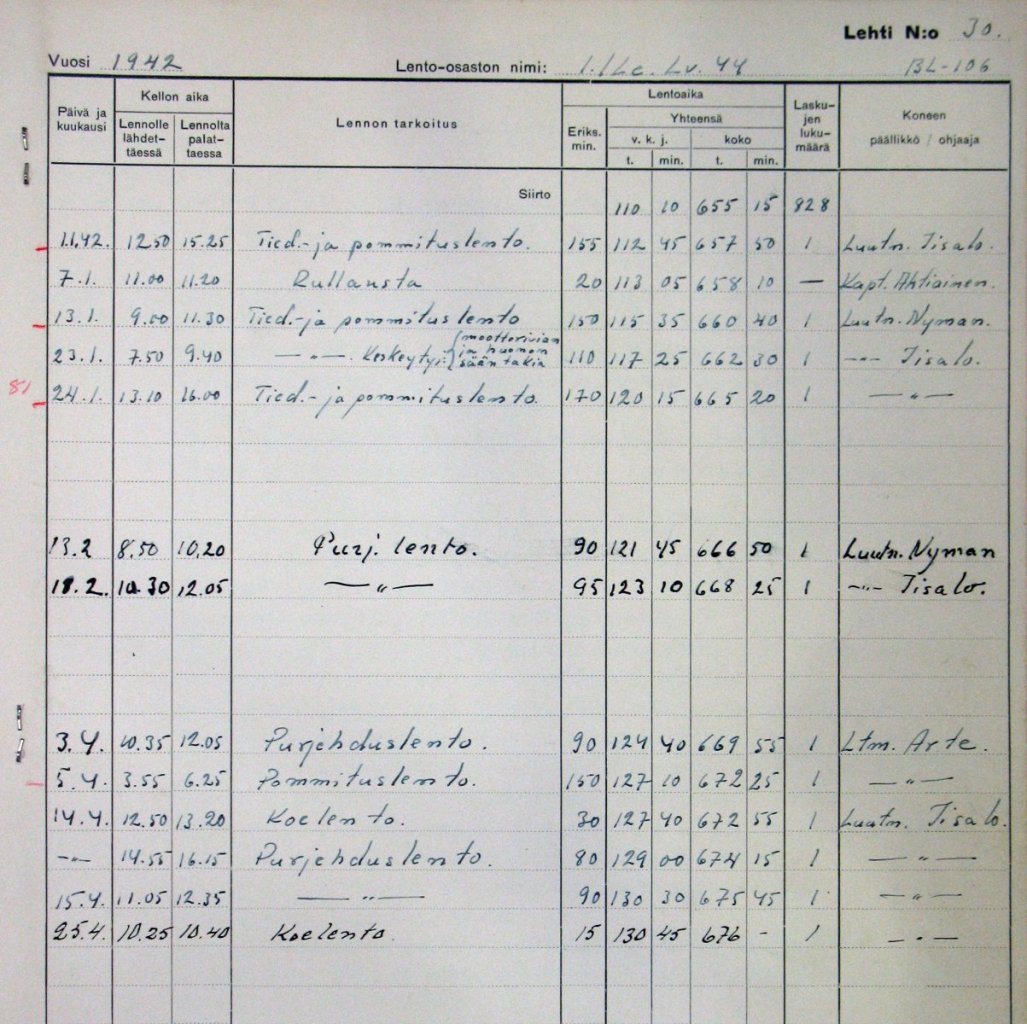 Lehti N:o 30.
Vuosi 1942 Lento-osaston nimi: 1./Le. Lv. 44 BL-106
Päivä ja kuukausi Kellon aika Lennolle lähdettäessä Lennolta palattaessa Lennon tarkoitus Lentoaika Eriks. min. Yhteensä v. k. j. t. min. koko t. min. Laskujen lukumäärä Koneen päällikkö / ohjaaja
Siirto 110 10 655 15 828
1.1.42. 12.50 15.25 Tied.- ja pommituslento. 155 112 45 657 50 1 Luutn. Iisalo.
7.1. 11.00 11.20 Rullausta 20 113 05 658 10 — Kapt. Ahtiainen.
13.1. 9.00 11.30 Tied.- ja pommituslento 150 115 35 660 40 1 Luutn. Nyman.
23.1. 7.50 9.40 —„— Keskeytyi: (moottorivian ja huonon sään takia 110 117 25 662 30 1 —„— Iisalo.
81 24.1. 13.10 16.00 Tied.- ja pommituslento. 170 120 15 665 20 1 —„—
13.2 8.50 10.20 Purj. lento. 90 121 45 666 50 1 Luutn. Nyman
18.2. 10.30 12.05 —„— 95 123 10 668 25 1 —„— Iisalo.
3.4. 10.35 12.05 Purjehduslento. 90 124 40 669 55 1 Ltm. Arte.
5.4. 3.55 6.25 Pommituslento. 150 127 10 672 25 1 —„—
14.4. 12.50 13.20 Koelento. 30 127 40 672 55 1 Luutn. Iisalo.
—„— 14.55 16.15 Purjehduslento. 80 129 00 674 15 1 —„—
15.4. 11.05 12.35 —„— 90 130 30 675 45 1 —„—
25.4. 10.25 10.40 Koelento. 15 130 45 676 - 1 —„—